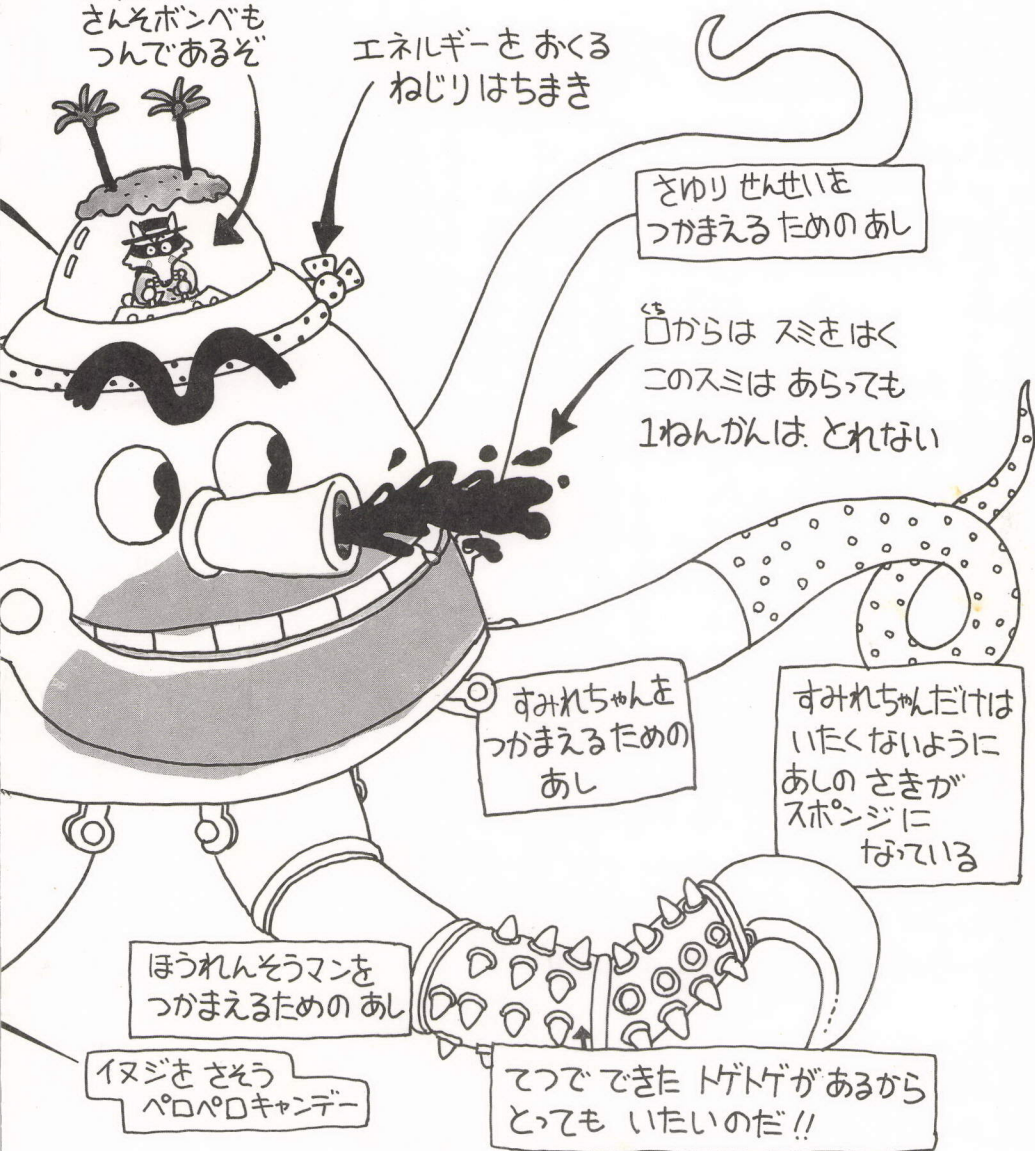 さんそボンベも
つんであるぞ
エネルギーを おくる
ねじりはちまき
さゆり せんせいを
つかまえる ための あし
くち
口からは スミをはく
このスミは あらっても
1ねんかんは とれない
すみれちゃんを
つかまえるための
あし
すみれちゃんだけは
いたくないように
あしの さきが
スポンジに
なっている
ほうれんそうマンを
つかまえるための あし
イヌジを さそう
ペロペロキャンデー
てつで できた トゲトゲが あるから
とっても いたいのだ!!